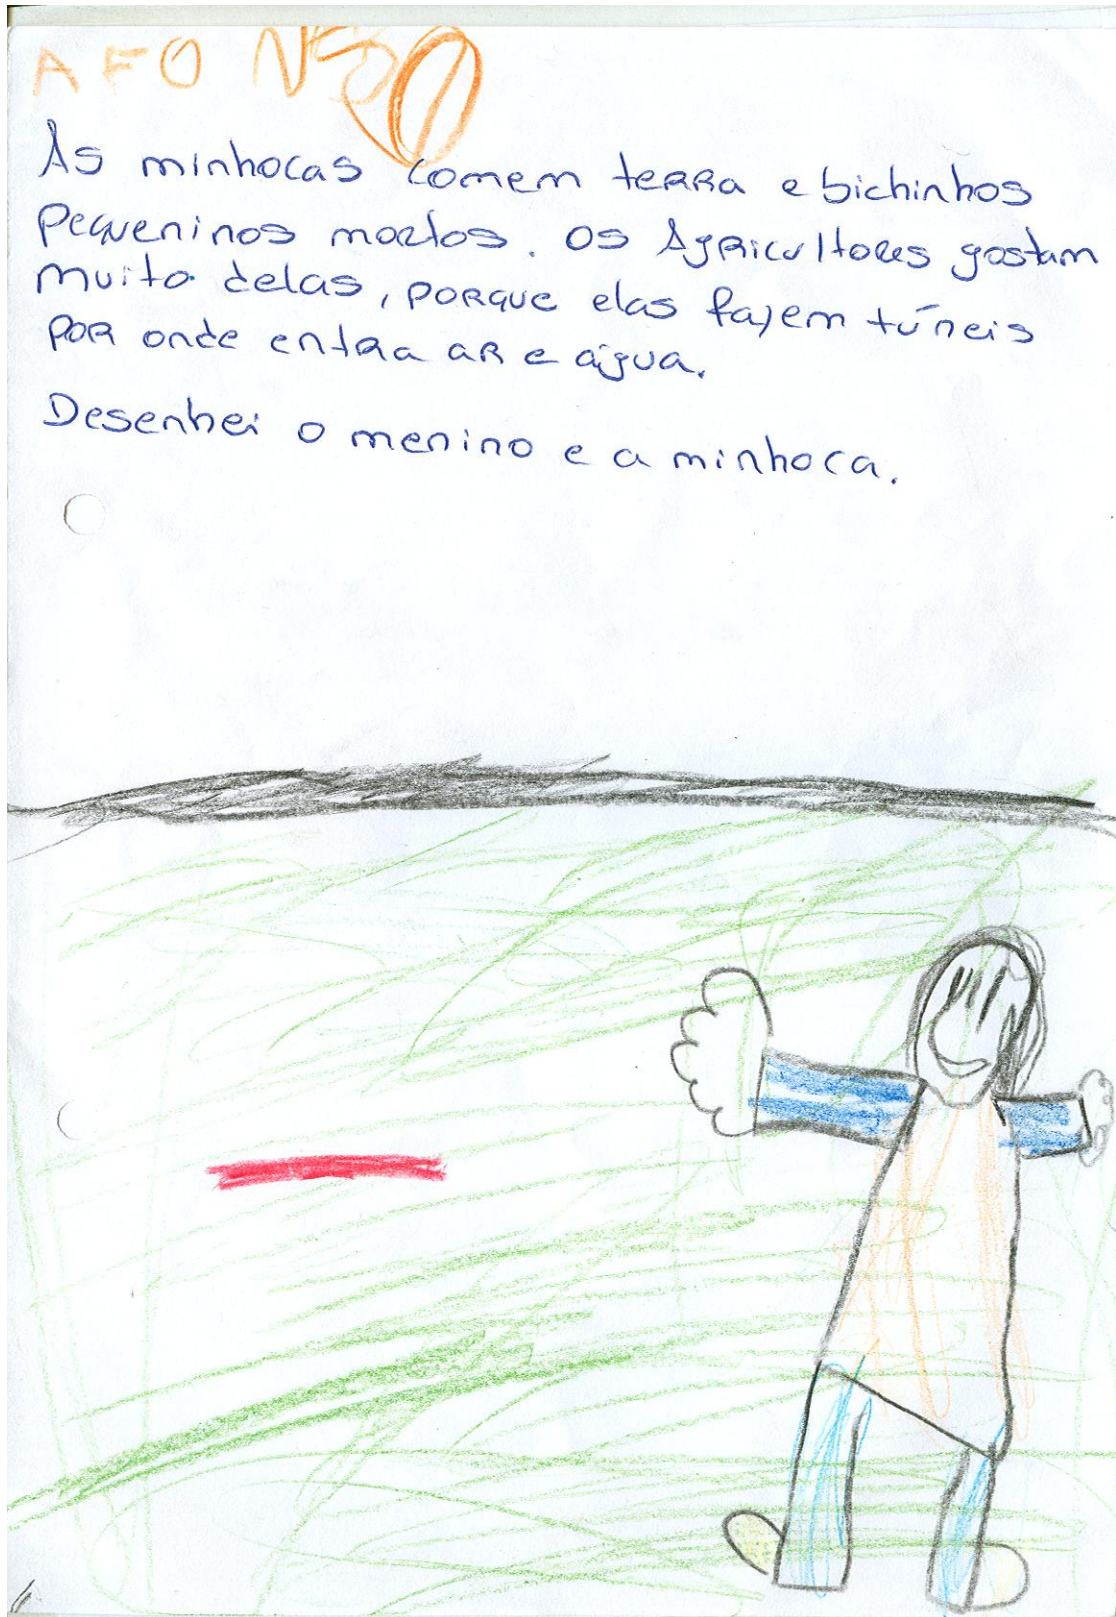 AFONSO
As minhocas comem terra e bichinhos
pequeninos mortos. Os Agricultores gostam
muito delas, porque elas fazem túneis
por onde entra ar e água.
Desenhei o menino e a minhoca.